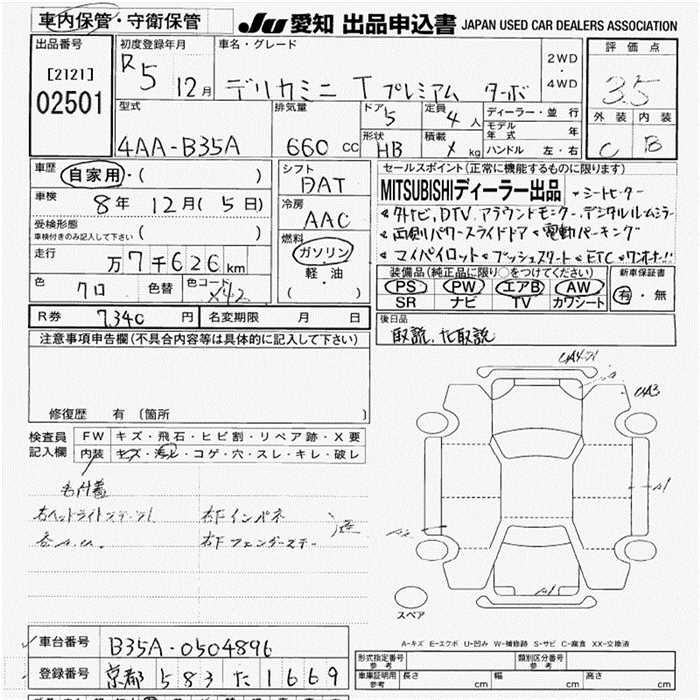 車内保管・守衛保管 JU 愛知 出品申込書 JAPAN USED CAR DEALERS ASSOCIATION
出品番号 初度登録年月 車名・グレード 評価点
[2121] R5 12月 デリカミニ T プレミアム ターボ 2WD・4WD 3.5
02501 型式 排気量 ドア 5 定員 4人 ディーラー・並行 外装 内装
モデル年式 年
4AA-B35A 660cc 形状 HB 積載 kg ハンドル 左・右 C B
車歴 自家用・( ) シフト DAT セールスポイント(正常に機能するものに限ります)
車検 8年 12月(5日) 冷房 AAC MITSUBISHIディーラー出品 シートヒーター
受検形態 ( ) ナビ、DTV アラウンドモニター デジタルルームミラー
車検付きのみ記入して下さい 燃料 両側パワースライドドア 電動パーキング
走行 万7千626km ガソリン マイパイロット プッシュスタート ETC ワンオーナー!!
軽・油 装備品(純正品に限り○をつけてください) 新車保証書
色 クロ 色替 色コード X42 ( ) PS PW エアB AW 有・無
SR ナビ TV カワシート
R券 7,340円 名変期限 月 日 後日品
注意事項申告欄(不具合内容等は具体的に記入して下さい) 取説、ナビ取説
修復歴 有 (箇所
UA3
検査員 FW キズ・飛石・ヒビ割・リペア跡・X要
記入欄 内装 キズ・汚れ・コゲ・穴・スレ・キレ・破レ
A1
右下インパネ
スペア
A-キズ E-エクボ U-凹み W-補修跡 S-サビ C-腐食 XX-交換済
車台番号 B35A-0504896
型式指定番号 参考 類別区分番号 参考
登録番号 京都 583 た 1669
車庫証明用 参考 長さ cm 幅 cm 高さ cm